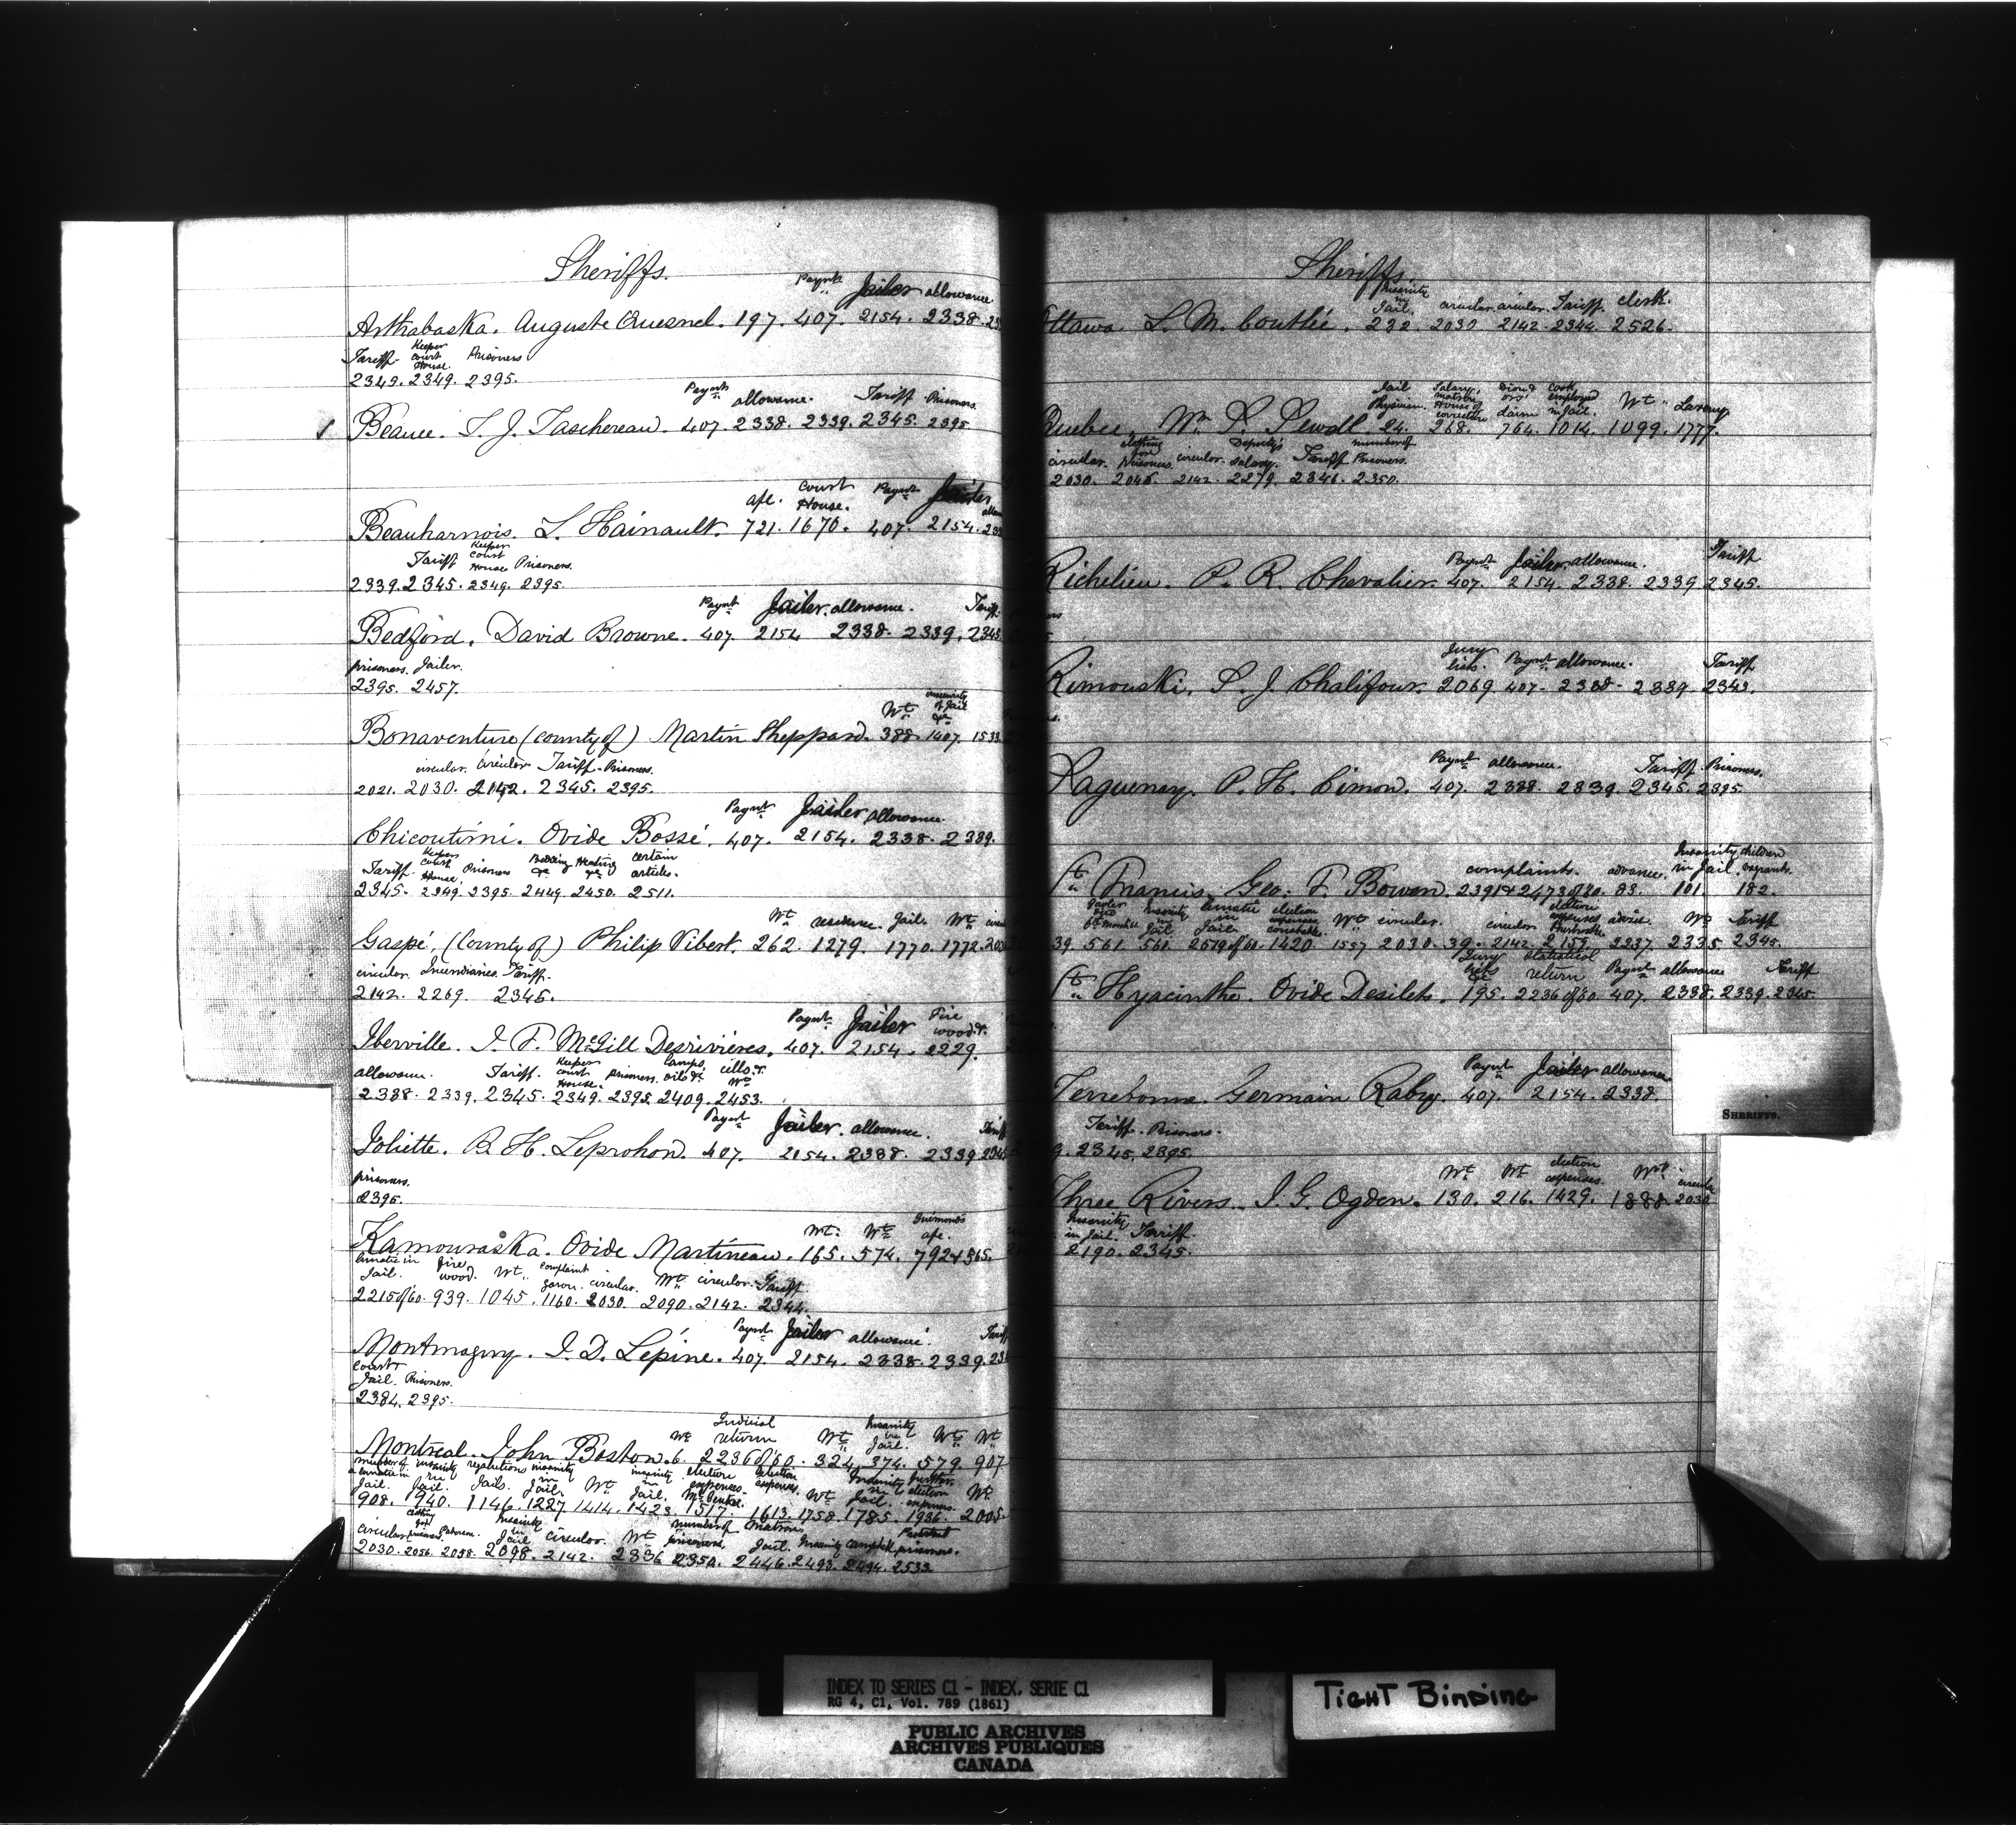 Sheriffs.
Paymt Jailer allowance
Arthabaska. Auguste Quesnel. 197. 407. 2154. 2338.
Tariff. Keeper Court House. Prisoners
2349. 2349. 2395.
Paymt allowance. Tariff Prisoners.
Beauce. T. J. Taschereau. 407. 2338. 2339. 2345. 2395
apl. Court House. Paymt Jailer
Beauharnois. L. Hainault. 721. 1670. 407. 2154.
Tariff Keeper Court House Prisoners.
2339. 2345. 2349. 2395.
Paymt Jailer. allowance. Tariff.
Bedford. David Browne. 407. 2154 2338. 2339. 2345
prisoners. Jailer.
2395. 2457.
Wt insecurity of Jail &c
Bonaventure (county of) Martin Sheppard. 388. 1407. 1533
circular. circular. Tariff. Prisoners.
2021. 2030. 2142. 2345. 2395.
Paymt Jailer allowance
Chicoutimi. Ovide Bossé. 407. 2154. 2338. 2339.
Tariff. Keeper Court House. Prisoners Bedding &c Heating &c certain articles.
2345. 2349. 2395. 2449. 2450. 2511.
Wt residence Jail. Wt
Gaspé, (County of) Philip Vibert. 262. 1279. 1770. 1772.
circular. Incendiaries. Tariff.
2142. 2269. 2345.
Paymt Jailer Fire wood &.
Iberville. I. F. McGill Desrivières. 407. 2154. 2229.
allowance. Tariff. Keeper Court House. prisoners. Lamps, oil & cells &.
2338. 2339. 2345. 2349. 2395. 2409. 2453.
Paymt Jailer. allowance. Tariff
Joliette. B. H. Leprohon. 407. 2154. 2338. 2339 2345
prisoners.
2395.
Wt. Wt apl.
Kamouraska. Ovide Martineau. 165. 574. 792 & 565.
lunatic in Jail. fire wood. Wt. complaint circular. Wt circular. Tariff
2215 of 60. 939. 1045. 1160. 2030. 2090. 2142. 2344.
Paymt Jailer allowance Tariff
Montmagny. I. D. Lépine. 407. 2154. 2338. 2339.
Court & Jail. Prisoners.
2384. 2395.
Wt Judicial return Wt Insanity in Jail. Wt Wt
Montreal. John Boston. 6. 2236 of 60. 324. 374. 579. 907
number of lunatic in Jail. insanity in Jail. regulations Jails. insanity in Jail. Wt insanity in Jail. election expenses. election expenses. Wt Insanity in Jail. further election expenses. Wt
908. 940. 1146. 1227. 1414. 1423. 1517. 1613. 1758. 1785. 1936. 2005.
circular. clothing for prisoners. Insanity in Jail circular. Wt number of prisoners. Matron Jail. Insanity Campbell Protestant prisoners.
2030. 2056. 2058. 2098. 2142. 2336 2350. 2446. 2493. 2494. 2533
Sheriffs.
Insanity in Jail. circular. circular. Tariff. clerk.
Ottawa L. M. Coutlée. 232. 2030 2142. 2344. 2526.
Jail Physician. Salary, matron House of correction claim Cook employed in Jail. Wt
Quebec. Wm S. Sewell 24. 268. 764. 1014. 1099. 1777.
circular. clothing for Prisoners. circular. Deputy's salary. Tariff number of Prisoners.
2030. 2048. 2142. 2279. 2346. 2350.
Paymt Jailer. allowance. Tariff
Richelieu. P. R. Chevalier. 407. 2154. 2338. 2339 2345.
Jury lists. Paymt allowance. Tariff
Rimouski. S. J. Chalifour. 2069 407. 2338. 2339 2345.
Paymt allowance. Tariff. Prisoners.
Saguenay. P. H. Cimon. 407. 2338. 2339. 2345. 2395.
complaints. advance. Insanity in Jail children vagrants.
St Francis. Geo. F. Bowen. 2391 & 2473 of 60. 83. 101. 182.
Insanity in Jail Lunatic in Jail. election expenses constables. Wt circular. circular election expenses advice. Wt Tariff
39. 561. 560. 2519 of 60. 1420. 1557 2030. 39. 2142. 2159. 2237. 2335 2345.
Jury lists &c Statistical return Paymt allowance Tariff
St Hyacinthe. Ovide Desilets. 195. 2236 of 60. 407. 2338. 2339. 2345.
Paymt Jailer allowance
Terrebonne. Germain Raby. 407. 2154. 2338.
Tariff. Prisoners.
2345. 2395.
Wt Wt election expenses. Wt circular
Three Rivers. I. G. Ogden. 130. 216. 1429. 1888. 2030
Insanity in Jail. Tariff.
2190. 2345.
SHERIFFS.
INDEX TO SERIES C1 - INDEX, SERIE C1
RG 4, C1, Vol. 789 (1861)
PUBLIC ARCHIVES
ARCHIVES PUBLIQUES
CANADA
TIGHT BINDING